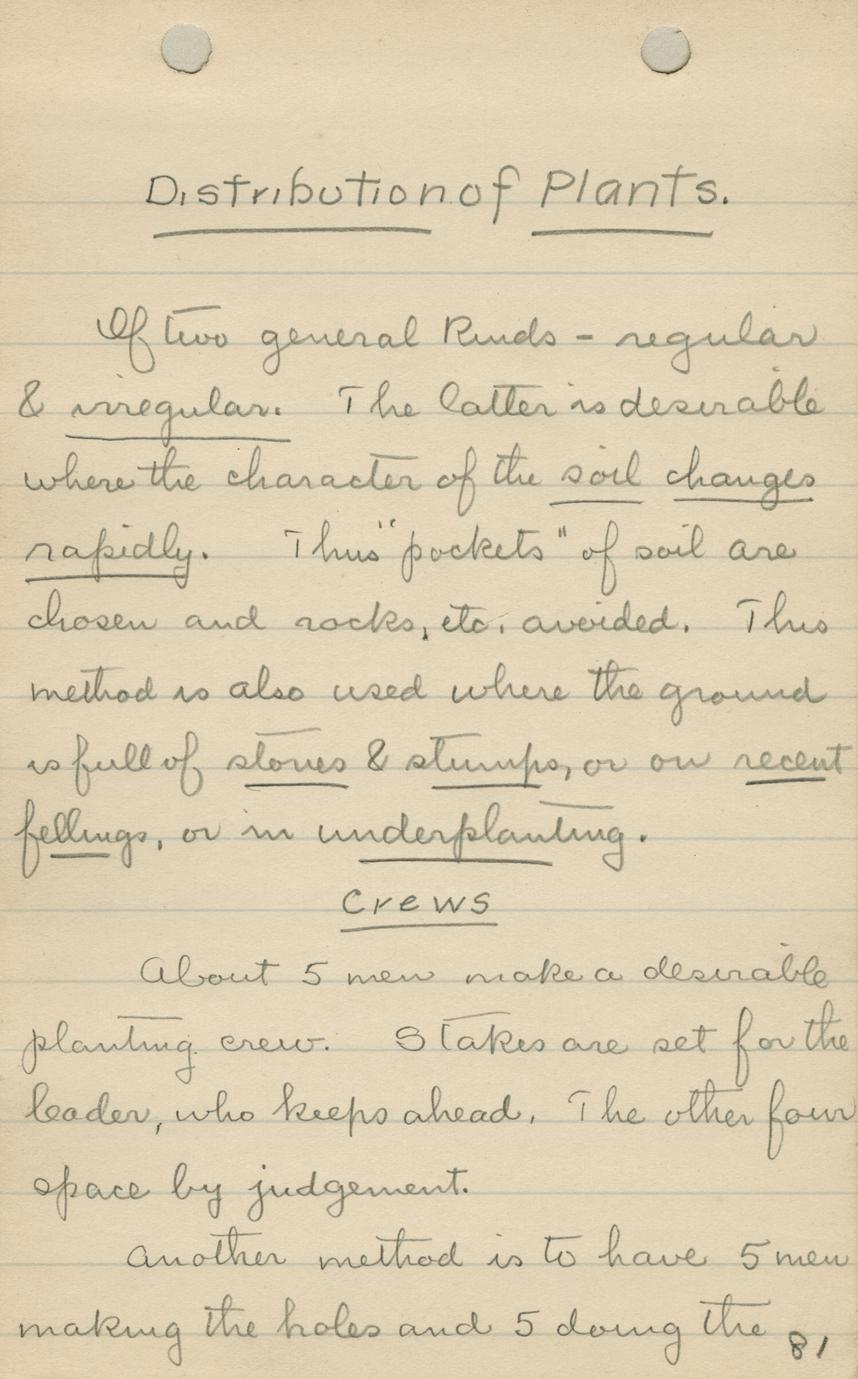 Distribution of Plants.
Of two general kinds - regular
& irregular. The latter is desirable
where the character of the soil changes
rapidly. Thus "pockets" of soil are
chosen and rocks, etc. avoided. This
method is also used where the ground
is full of stones & stumps, or on recent
fellings, or in underplanting.
Crews
About 5 men make a desirable
planting crew. Stakes are set for the
leader, who keeps ahead. The other four
space by judgement.
Another method is to have 5 men
making the holes and 5 doing the
81